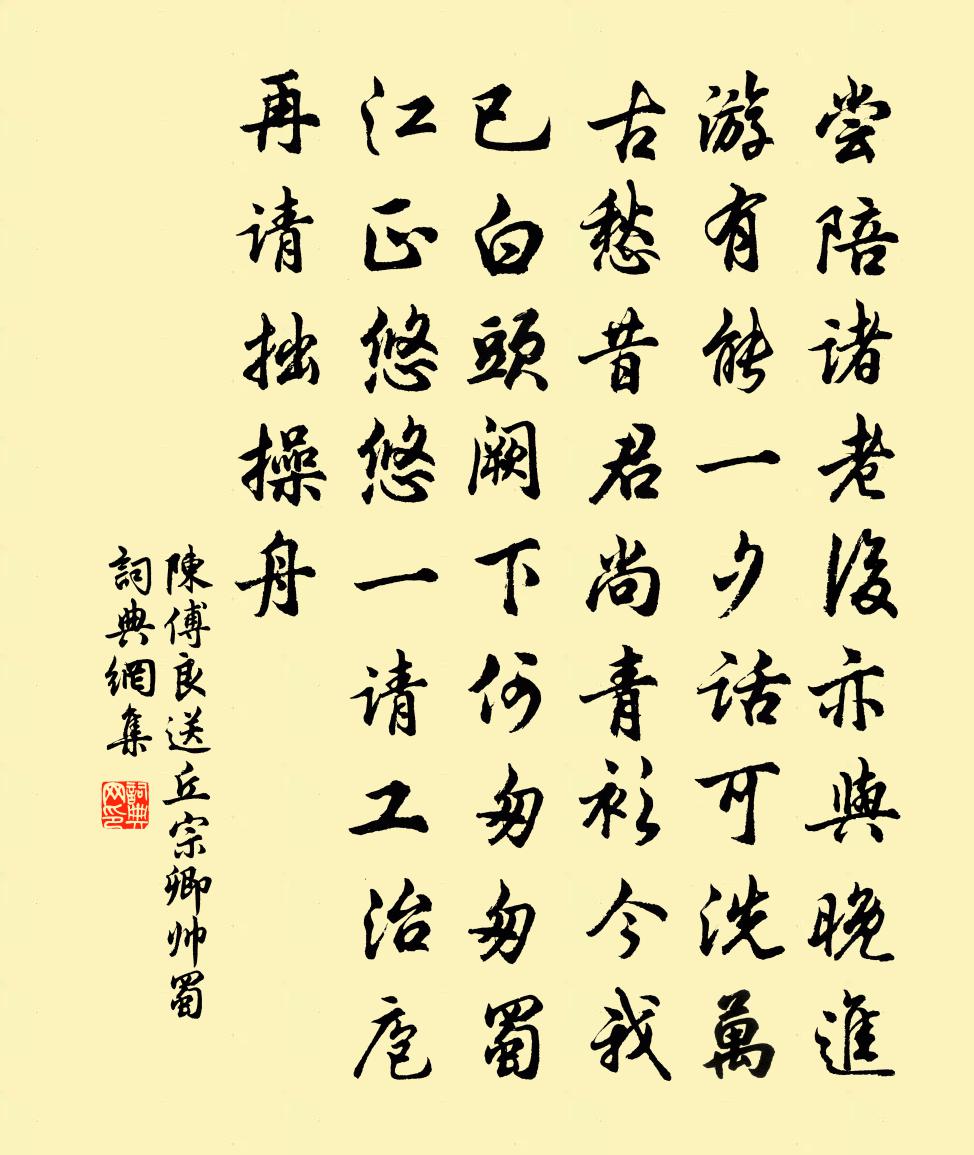 尝陪诸老後亦與晚進
游有能一夕话可洗萬
古愁昔君尚青衫今我
已白頭阙下何匆匆蜀
江正悠悠一请工治庖
再请拙操舟
陳傅良送丘宗卿帅蜀
詞典網集
詞典网印